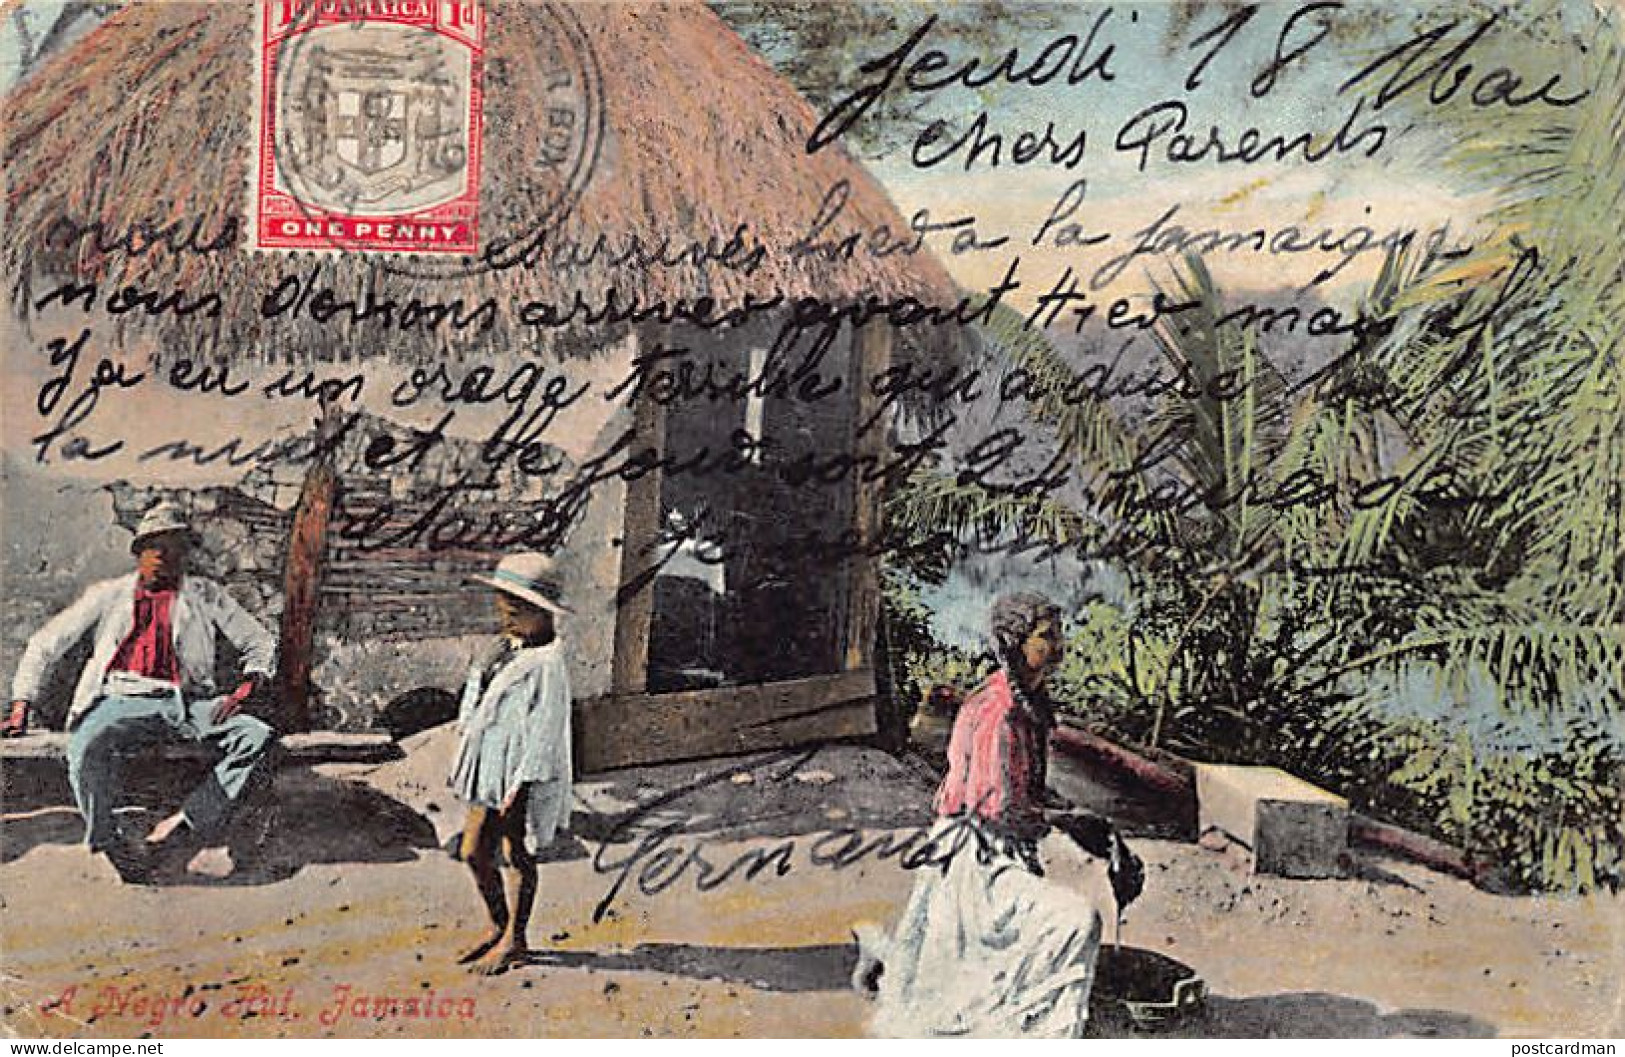 JAMAICA 1d
ONE PENNY
BOX
Jeudi 18 Mai
chers Parents
nous arrivés hier a la Jamaique
nous devrions arriver avant Hier. mais il
Ya eu un orage terrible qui a duré
la nuit et le jour soit 24 heures de
retard. je
Fernand
A Negro Hut. Jamaica
postcardman